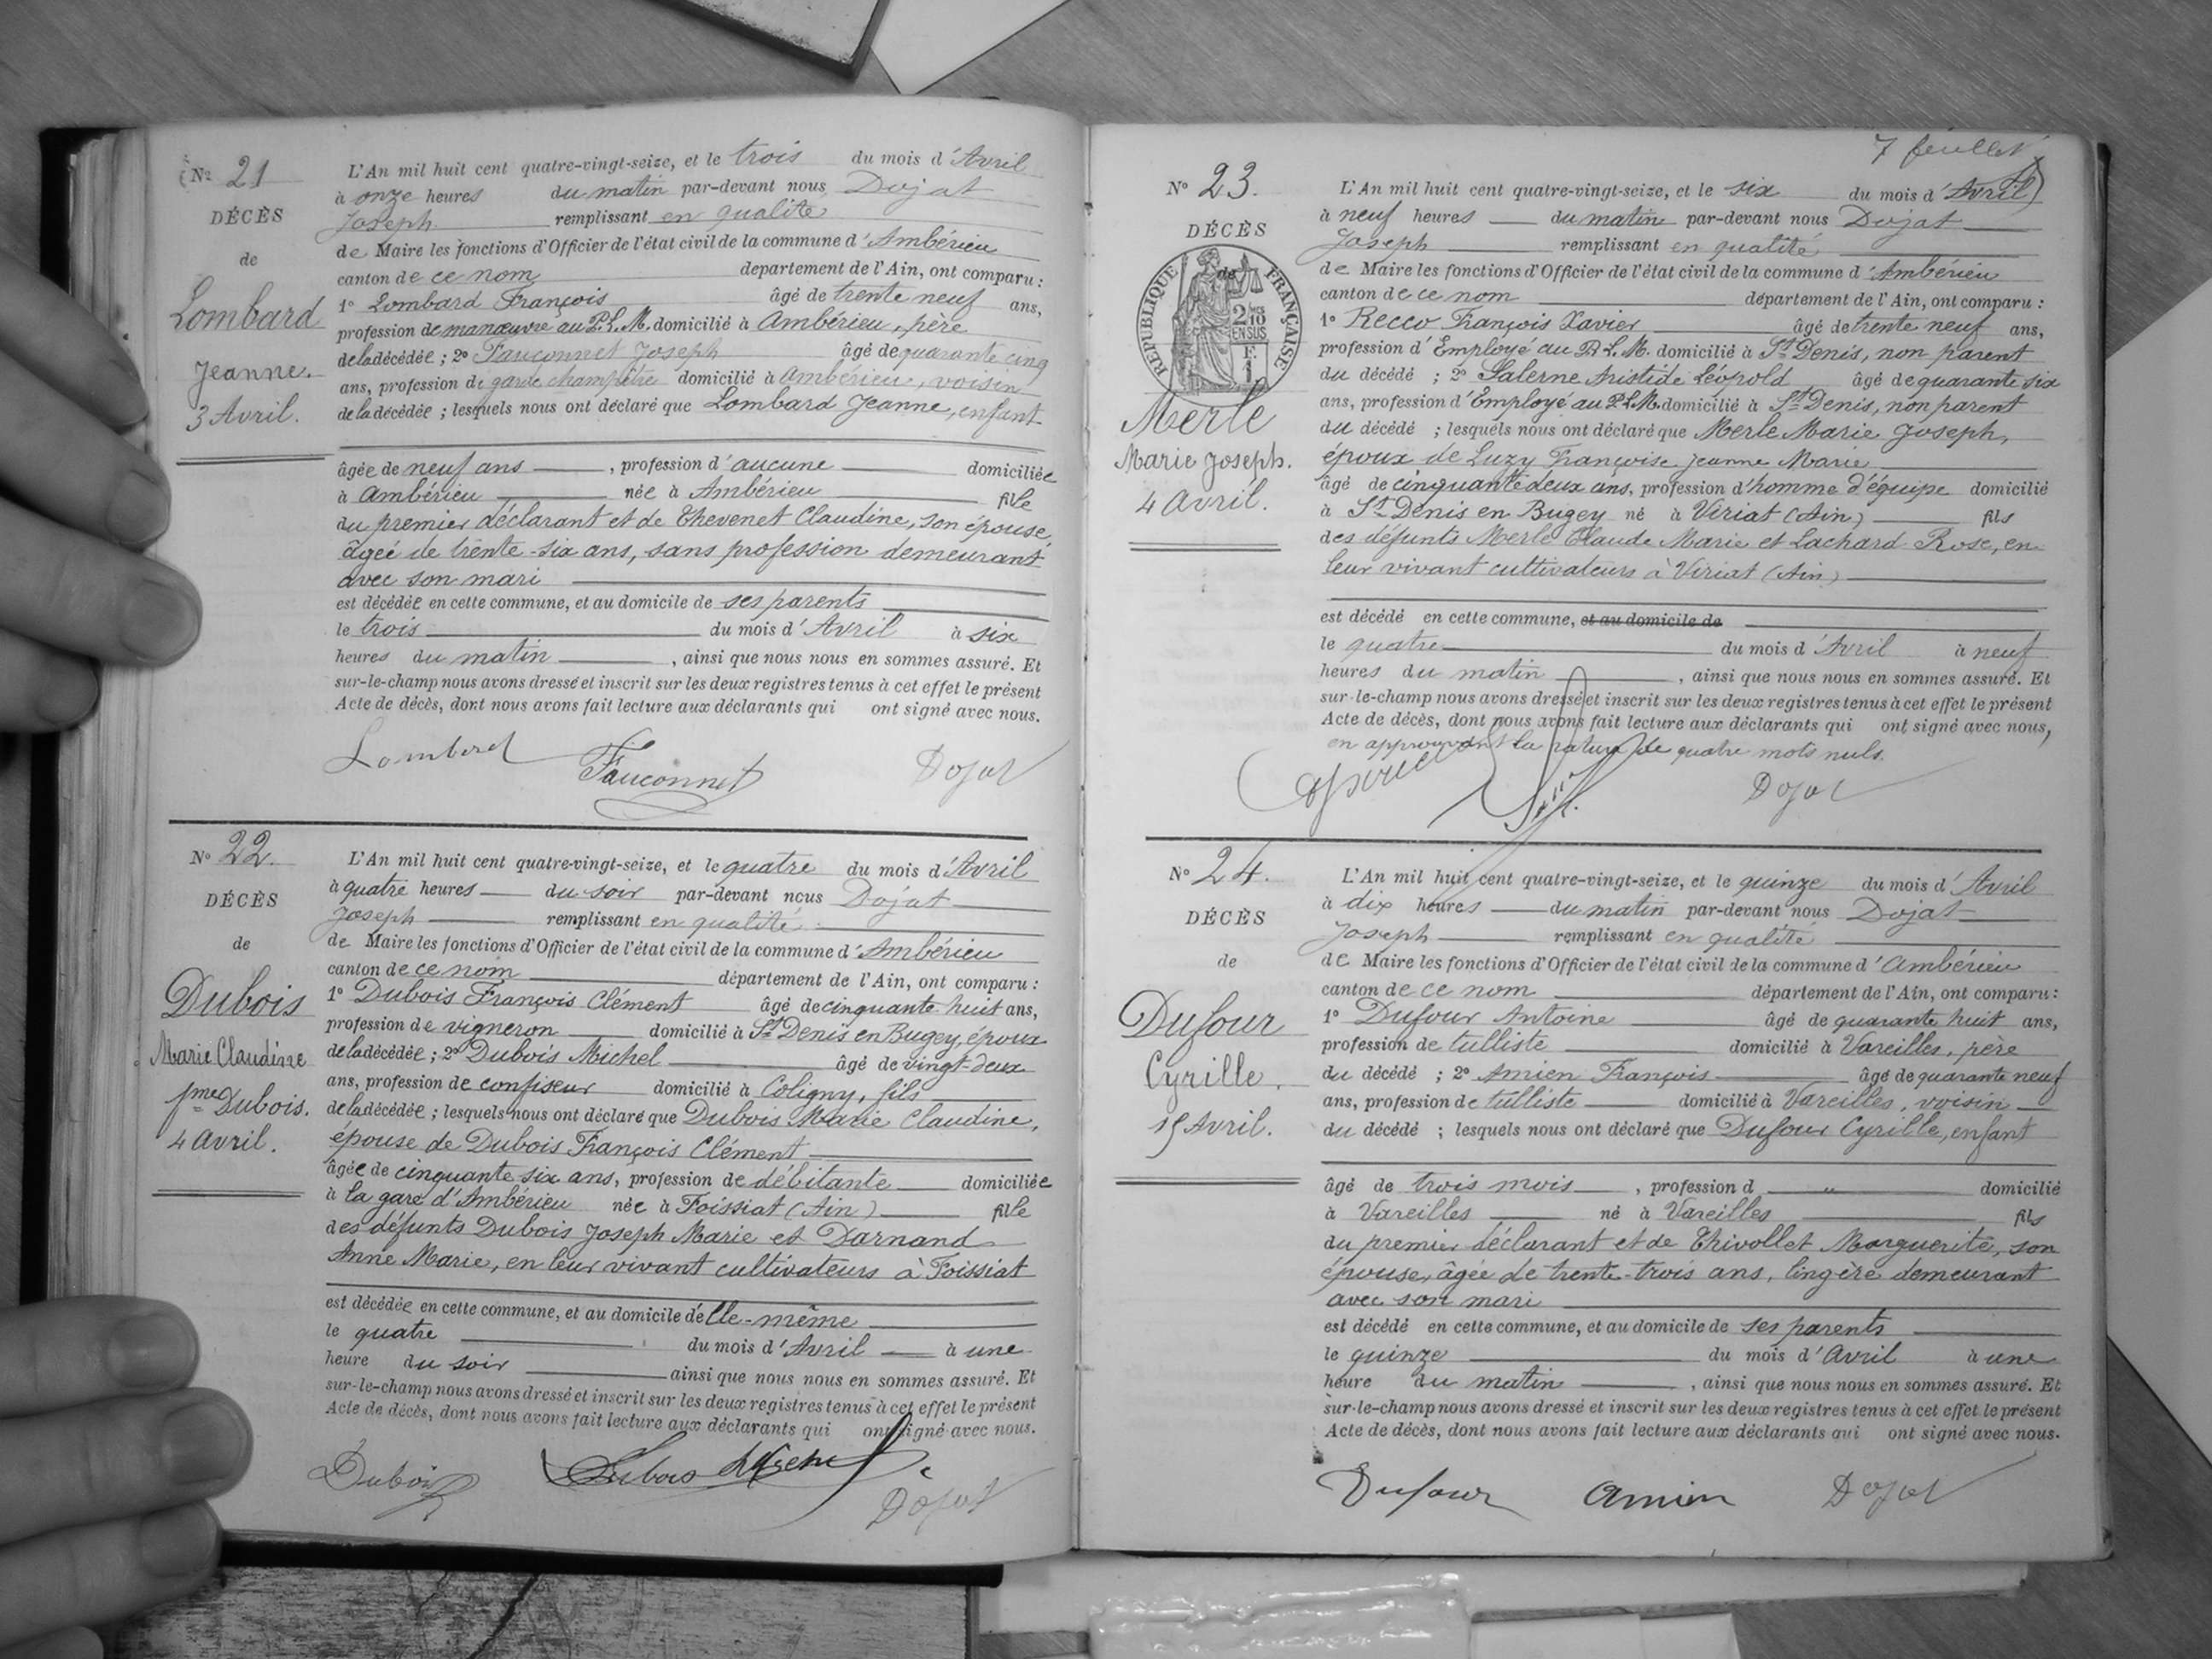 No 21
DÉCÈS
de
Lombard
Jeanne.
3 Avril.
L'An mil huit cent quatre-vingt-seize, et le trois du mois d'Avril
à onze heures du matin par-devant nous Dojat
Joseph remplissant en qualité
de Maire les fonctions d'Officier de l'état civil de la commune d'Ambérieu
canton de ce nom département de l'Ain, ont comparu :
1o Lombard François âgé de trente neuf ans,
profession de manœuvre au P.L.M. domicilié à Ambérieu, père
de la décédée ; 2o Fauconnet Joseph âgé de quarante cinq
ans, profession de garde champêtre domicilié à Ambérieu, voisin
de la décédée ; lesquels nous ont déclaré que Lombard Jeanne, enfant
âgée de neuf ans , profession d'aucune domiciliée
à Ambérieu née à Ambérieu fille
du premier déclarant et de Thevenet Claudine, son épouse,
âgée de trente-six ans, sans profession demeurant
avec son mari
est décédée en cette commune, et au domicile de ses parents
le trois du mois d'Avril à six
heures du matin , ainsi que nous nous en sommes assuré. Et
sur-le-champ nous avons dressé et inscrit sur les deux registres tenus à cet effet le présent
Acte de décès, dont nous avons fait lecture aux déclarants qui ont signé avec nous.
Lombard Fauconnet Dojat
No 22.
DÉCÈS
de
Dubois
Marie Claudine
fme Dubois.
4 Avril.
L'An mil huit cent quatre-vingt-seize, et le quatre du mois d'Avril
à quatre heures du soir par-devant nous Dojat
Joseph remplissant en qualité
de Maire les fonctions d'Officier de l'état civil de la commune d'Ambérieu
canton de ce nom département de l'Ain, ont comparu :
1o Dubois François Clément âgé de cinquante huit ans,
profession de vigneron domicilié à St Denis en Bugey, époux
de la décédée ; 2o Dubois Michel âgé de vingt-deux
ans, profession de confiseur domicilié à Coligny, fils
de la décédée ; lesquels nous ont déclaré que Dubois Marie Claudine,
épouse de Dubois François Clément
âgée de cinquante six ans, profession de débitante domiciliée
à la gare d'Ambérieu née à Foissiat (Ain) fille
des défunts Dubois Joseph Marie et Darnand
Anne Marie, en leur vivant cultivateurs à Foissiat
est décédée en cette commune, et au domicile d'elle-même
le quatre du mois d'Avril à une
heure du soir ainsi que nous nous en sommes assuré. Et
sur-le-champ nous avons dressé et inscrit sur les deux registres tenus à cet effet le présent
Acte de décès, dont nous avons fait lecture aux déclarants qui ont signé avec nous.
Dubois Dubois Michel Dojat
7 feuillet
No 23.
DÉCÈS
de
RÉPUBLIQUE FRANÇAISE
2/10
EN SUS
Merle
Marie Joseph.
4 Avril.
L'An mil huit cent quatre-vingt-seize, et le six du mois d'Avril
à neuf heures du matin par-devant nous Dojat
Joseph remplissant en qualité
de Maire les fonctions d'Officier de l'état civil de la commune d'Ambérieu
canton de ce nom département de l'Ain, ont comparu :
1o Recco François Xavier âgé de trente neuf ans,
profession d'Employé au P.L.M. domicilié à St Denis, non parent
du décédé ; 2o Salerne Aristide Léopold âgé de quarante six
ans, profession d'Employé au P.L.M. domicilié à St Denis, non parent
du décédé ; lesquels nous ont déclaré que Merle Marie Joseph,
époux de Luzy Françoise Jeanne Marie
âgé de cinquante deux ans, profession d'homme d'équipe domicilié
à St Denis en Bugey né à Viriat (Ain) fils
des défunts Merle Claude Marie et Lachard Rose, en
leur vivant cultivateurs à Viriat (Ain)
est décédé en cette commune, et au domicile de
le quatre du mois d'Avril à neuf
heures du matin , ainsi que nous nous en sommes assuré. Et
sur-le-champ nous avons dressé et inscrit sur les deux registres tenus à cet effet le présent
Acte de décès, dont nous avons fait lecture aux déclarants qui ont signé avec nous,
en approuvant la rature de quatre mots nuls.
Dojat
No 24.
DÉCÈS
de
Dufour
Cyrille.
15 Avril.
L'An mil huit cent quatre-vingt-seize, et le quinze du mois d'Avril
à dix heures du matin par-devant nous Dojat
Joseph remplissant en qualité
de Maire les fonctions d'Officier de l'état civil de la commune d'Ambérieu
canton de ce nom département de l'Ain, ont comparu :
1o Dufour Antoine âgé de quarante huit ans,
profession de tulliste domicilié à Vareilles, père
du décédé ; 2o Amien François âgé de quarante neuf
ans, profession de tulliste domicilié à Vareilles, voisin
du décédé ; lesquels nous ont déclaré que Dufour Cyrille, enfant
âgé de trois mois , profession d " domicilié
à Vareilles né à Vareilles fils
du premier déclarant et de Thivollet Marguerite, son
épouse, âgée de trente-trois ans, lingère demeurant
avec son mari
est décédé en cette commune, et au domicile de ses parents
le quinze du mois d'Avril à une
heure du matin , ainsi que nous nous en sommes assuré. Et
sur-le-champ nous avons dressé et inscrit sur les deux registres tenus à cet effet le présent
Acte de décès, dont nous avons fait lecture aux déclarants qui ont signé avec nous.
Dufour Amien Dojat